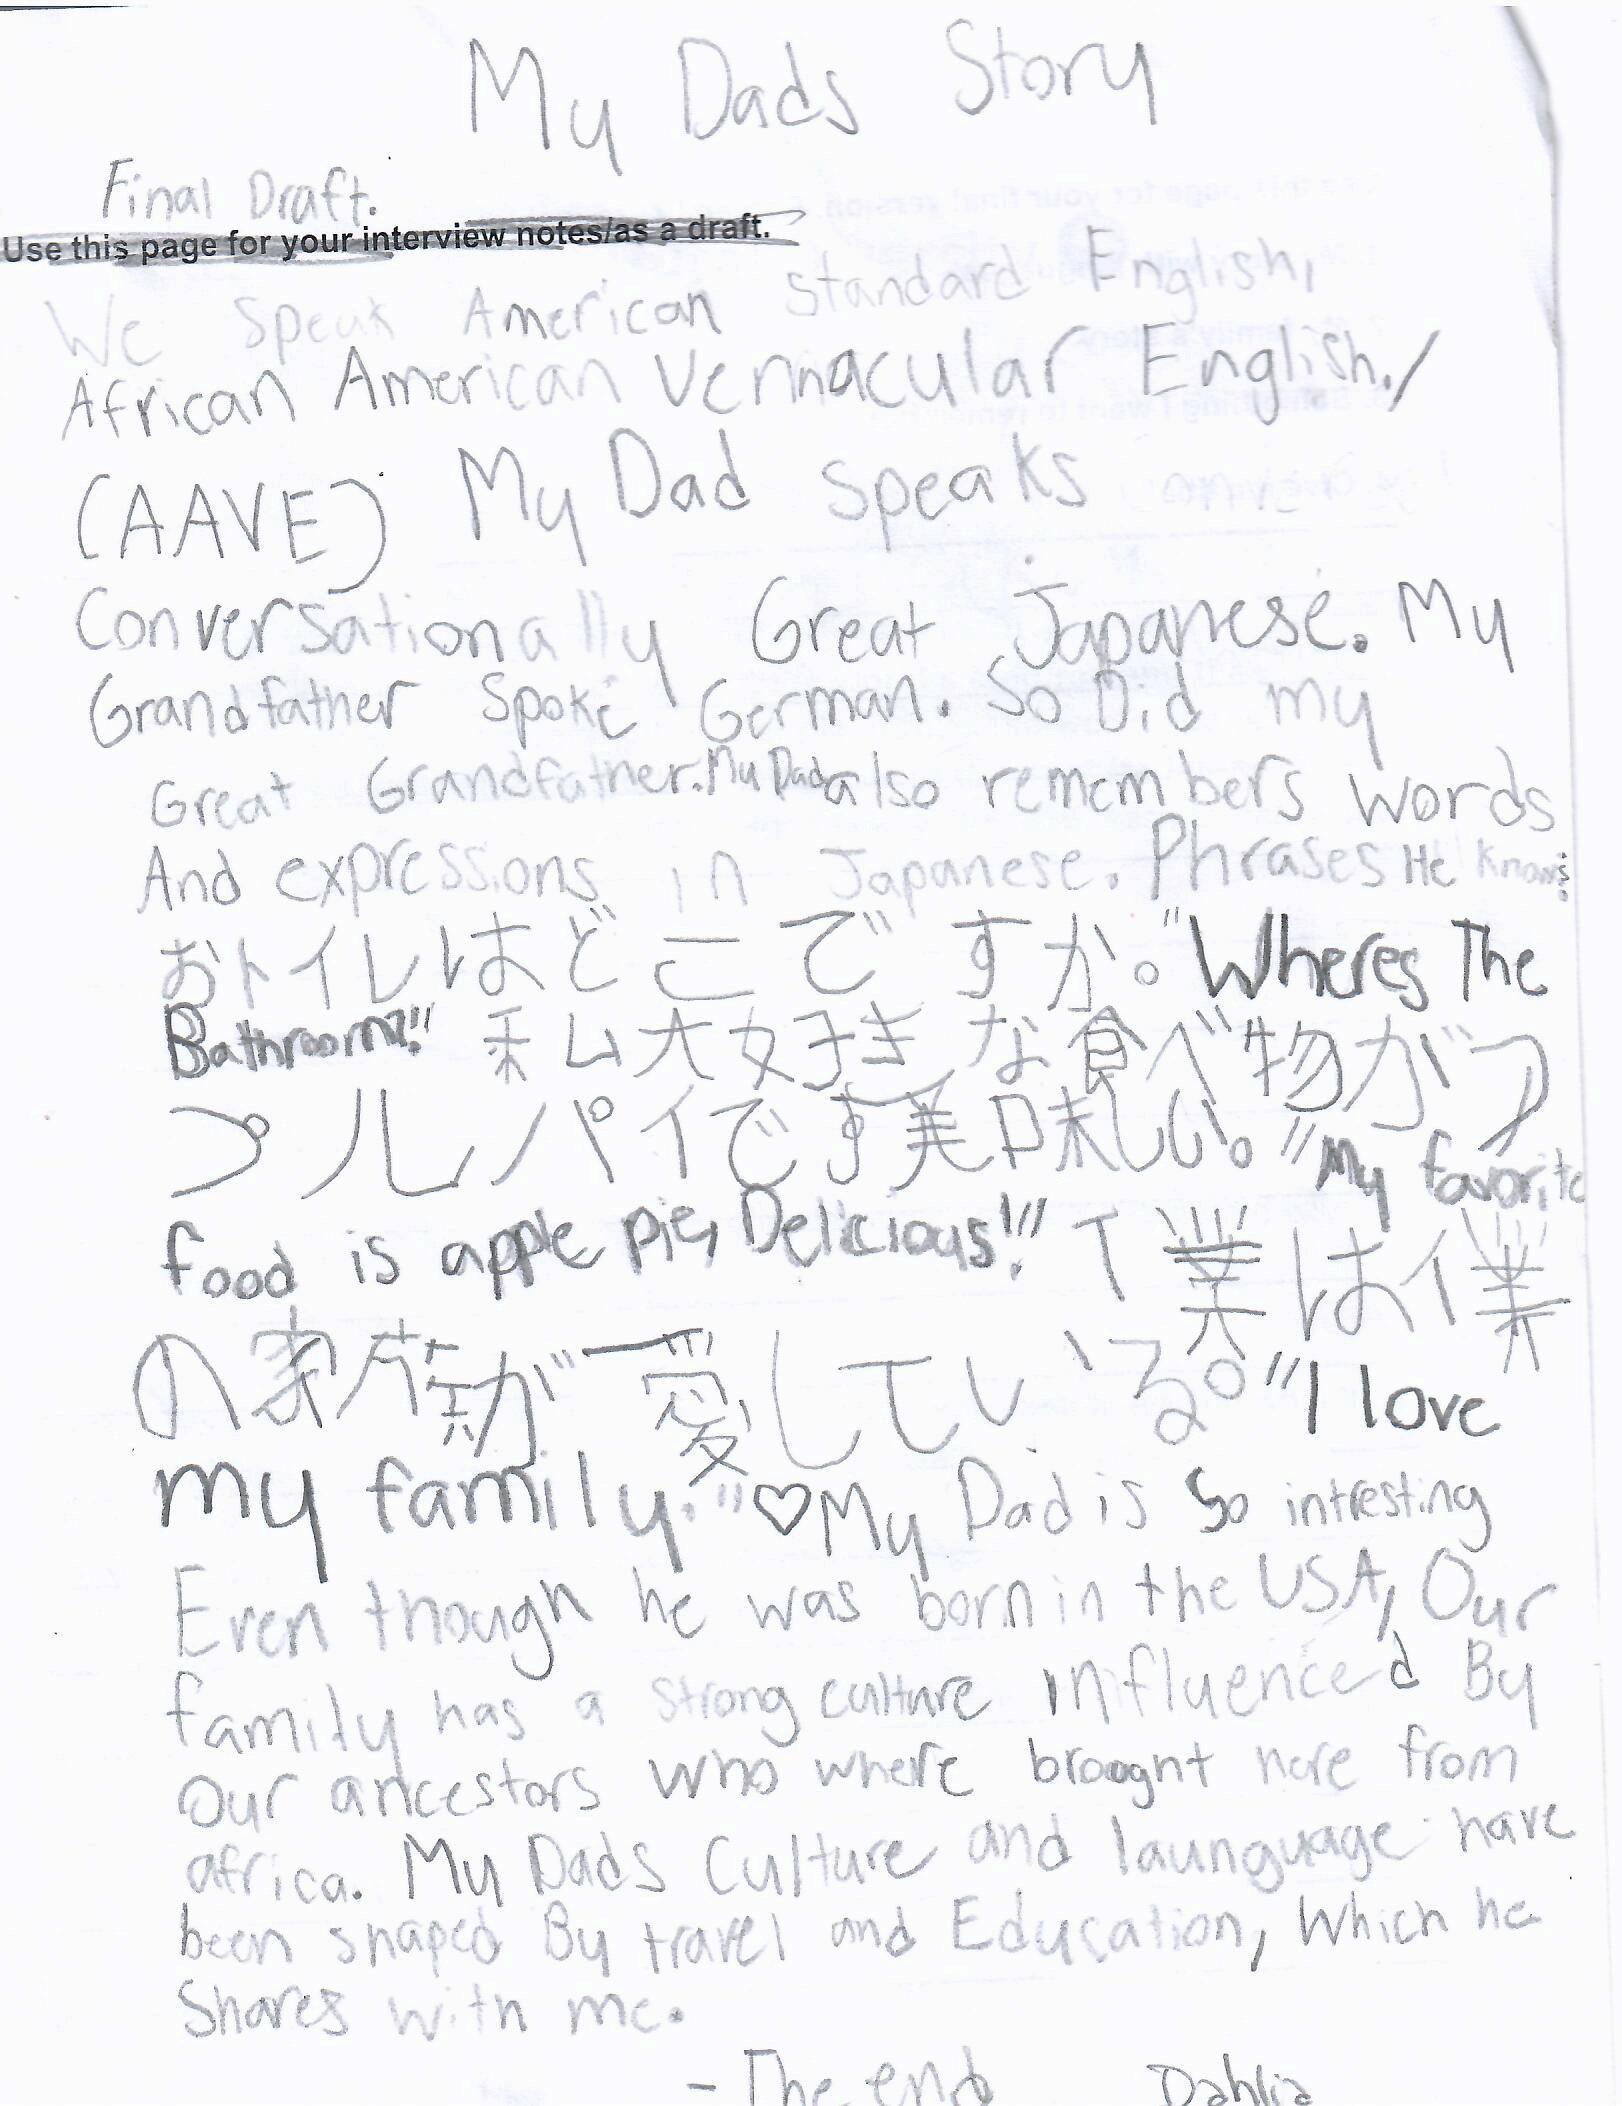 My Dads Story
Final Draft.
Use this page for your interview notes/as a draft.
We Speak American Standard English,
African American Vernnacular English./
(AAVE) My Dad Speaks
Conversationally Great Japanese. My
Grandfather Spoke German. So Did my
Great Grandfather. My Dad also remembers words
And expressions in Japanese. Phrases He knows:
おトイレはどこですか。"Wheres The
Bathroom?!" 私大好きな食べ物がつ
プルパイです美味しい。"My favorite
food is apple pie, Delicious!!" 僕は僕
の家族が愛している。"I love
my family." ♡ My Dad is So intresting
Even though he was born in the USA, Our
family has a strong culture influenced By
Our ancestors who where brooght here from
africa. My Dads Culture and launguage have
been shaped By travel and Education, Which he
Shares with me.
- The end Dahlia